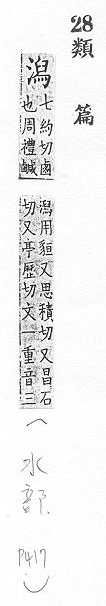 28類篇
潟
七約切鹵
也周禮鹹
潟用貆又思積切又昌石
切又亭歷切文一重音三
(水部 P417)